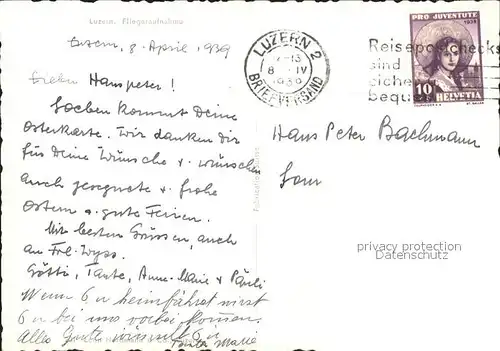 Luzern. Fliegeraufnahme
Luzern, 8. April 1939
Lieber Hanspeter!
Soeben kommt Deine
Osterkarte. Wir danken Dir
für Deine Wünsche & wünschen
auch gesegnete & frohe
Ostern & gute Ferien.
Mit besten Grüssen, auch
an Frl. Wyss.
Götti, Tante, Anne-Marie & Päuli
Wenn Du heimfährst musst
Du bei uns vorbei kommen.
Alles Gute wünscht Dir
Tante Marie
LUZERN 2
8 IV
1939
BRIEFVERSAND
Reisepostchecks
sind
siche
beque
PRO JUVENTUTE
1938
10
HELVETIA
Hans Peter Bachmann
privacy protection
Datenschutz